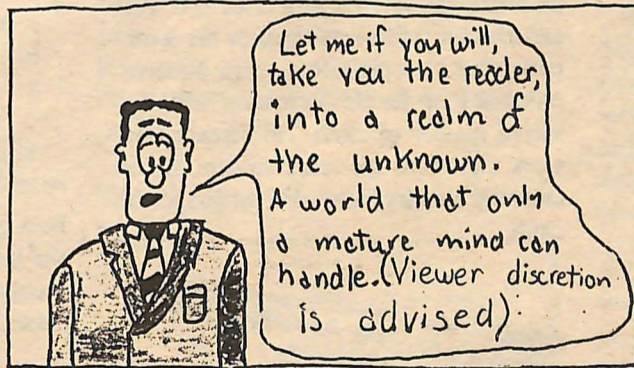 Let me if you will,
take you the reader,
into a realm of
the unknown.
A world that only
a mature mind can
handle. (Viewer discretion
is advised).